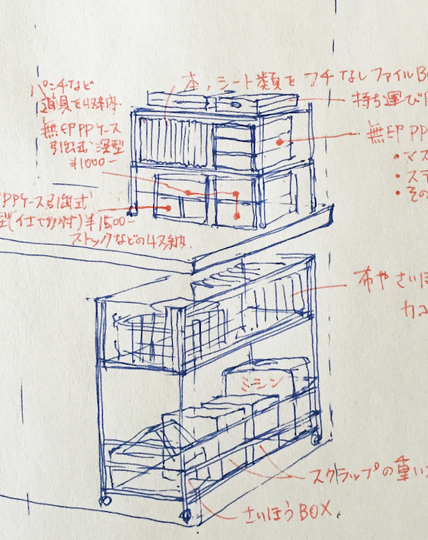 パンチなど
道具を収納.
本、シート類を フチなしファイルB
持ち運び
無印PPケース
引出式・深型
¥1000−
無印PP
・マス
・ステ
・その
PPケース引出式
型(仕切付)¥1500−
ストックなどの収納.
布やさいほ
ミシン
スクラップの重い
さいほうBOX.